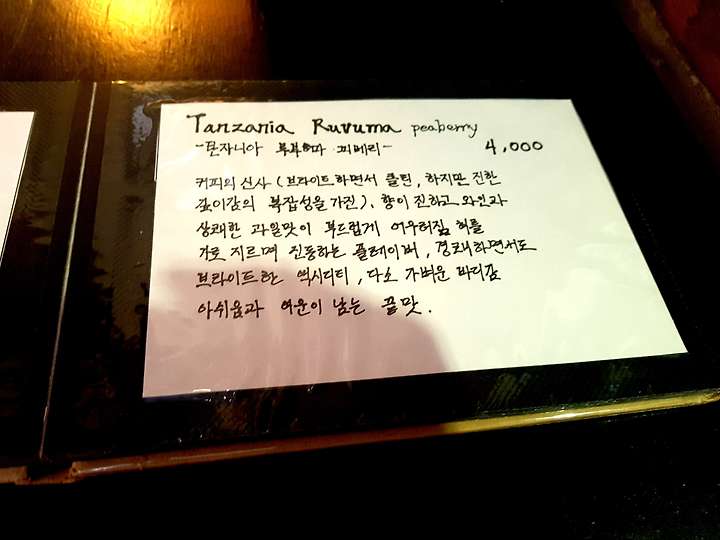 Tanzania Ruvuma peaberry
-탄자니아 루부마 피베리- 4,000
커피의 신사 (브라이트하면서 클린, 하지만 진한
깊이감의 복잡성을 가진). 향이 진하고 와인과
상쾌한 과일맛이 부드럽게 어우러짐 혀를
가로 지르며 진동하는 플레이버, 경쾌하면서도
브라이트한 액시디티, 다소 가벼운 바디감
아쉬움과 여운이 남는 끝맛.